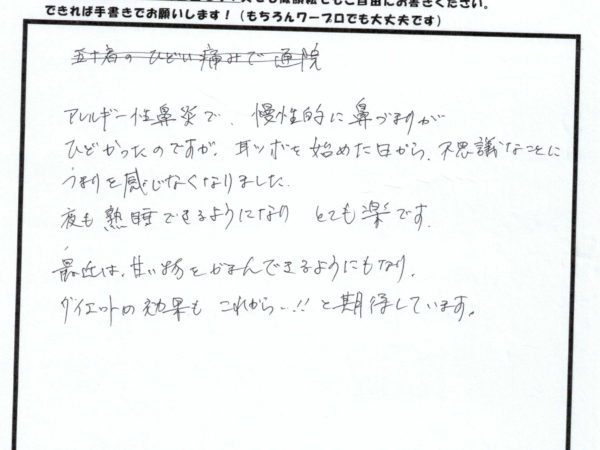 できれば手書きでお願いします！（もちろんワープロでも大丈夫です）
五十肩のひどい痛みで通院
アレルギー性鼻炎で、慢性的に鼻づまりが
ひどかったのですが、耳ツボを始めた日から、不思議なことに
つまりを感じなくなりました。
夜も熟睡できるようになり とても楽です。
最近は、甘い物をがまんできるようにもなり、
ダイエットの効果も これから…!! と期待しています。